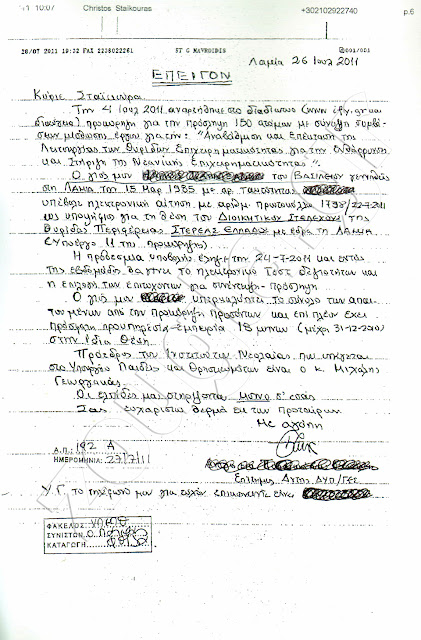 1 10:07 Christos Staikouras +302102922740 p.6
26/07 2011 19:22 FAX 2238022261 ST G MAVROIDIS 001/001
Λαμία 26 Ιουλ 2011
ΕΠΕΙΓΟΝ
Κύριε Σταϊκούρα
Την 4 Ιουλ 2011 αναρτήθηκε στο διαδίκτυο (www.ify.gr και
διαύγεια) προκήρυξη για την πρόσληψη 150 ατόμων με σύναψη συμβά-
σεων μίσθωσης έργου για την: "Αναβάθμιση και Επέκταση της
Λειτουργίας των Θυρίδων Επιχειρηματικότητας για την Ενθάρρυνση
και Στήριξη της Νεανικής Επιχειρηματικότητας".
Ο γιός μου του Βασιλείου γεννηθείς
στη Λαμία την 15 Μαρ 1985 με αρ. ταυτότητας
υπέβαλε ηλεκτρονική αίτηση με αριθμ. πρωτοκόλλου 1798/22-7-2011
ως υποψήφιος για τη θέση του Διοικητικού Στελέχους της
Θυρίδας Περιφέρειας Στερεάς Ελλάδος με έδρα τη Λαμία
(Υποέργο 11 της προκήρυξης).
Η προθεσμία υποβολής έληξε την 24-7-2011 και εντός
της εβδομάδος θα γίνει το ηλεκτρονικό τεστ δεξιοτήτων και
η επιλογή των επιτυχόντων για συνέντευξη-πρόσληψη
Ο γιός μου υπερκαλύπτει το σύνολο των απαι-
τουμένων από την προκήρυξη προσόντων και επί πλέον έχει
πρόσφατη προϋπηρεσία-εμπειρία 18 μηνών (μέχρι 31-12-2010)
στην ίδια θέση.
Πρόεδρος του Ινστιτούτου Νεολαίας που υπάγεται
στο Υπουργείο Παιδείας και Θρησκευμάτων είναι ο κ. Μιχάλης
Γεωργανάς.
Οι ελπίδες μας στηρίζονται μόνο σ' εσάς
Σας ευχαριστώ θερμά εκ των προτέρων
Με αγάπη
Α.Π.: 192 Α
ΗΜΕΡΟΜΗΝΙΑ: 27/7/11
Επίτιμος Δντης ΔΥΠ/ΓΕΣ
Υ.Γ. Το τηλέφωνό μου για τυχόν επικοινωνία είναι
ΦΑΚΕΛΟΣ
ΣΥΝΙΣΤΩΝ
ΚΑΤΑΓΩΓΗ